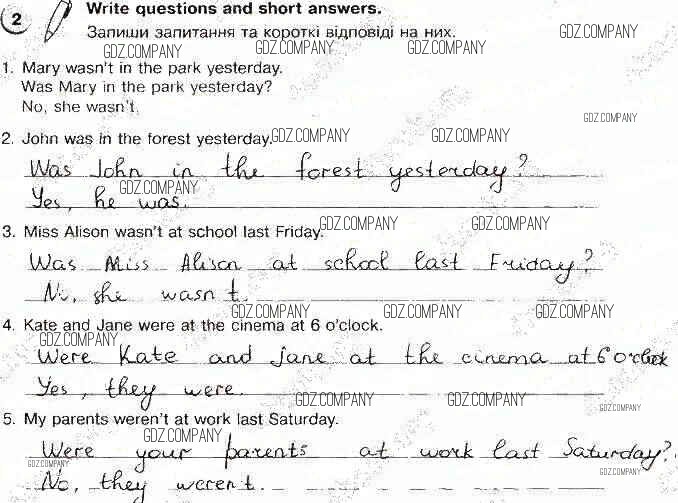 2 Write questions and short answers.
Запиши запитання та короткі відповіді на них.
GDZ.COMPANY GDZ.COMPANY GDZ.COMPANY
1. Mary wasn't in the park yesterday.
Was Mary in the park yesterday?
No, she wasn't.
GDZ.COMPANY
2. John was in the forest yesterday. GDZ.COMPANY GDZ.COMPANY
Was John in the forest yesterday?
GDZ.COMPANY
Yes, he was.
3. Miss Alison wasn't at school last Friday. GDZ.COMPANY GDZ.COMPANY
Was Miss Alison at school last Friday?
No, she wasn't.
GDZ.COMPANY GDZ.COMPANY GDZ.COMPANY
4. Kate and Jane were at the cinema at 6 o'clock.
GDZ.COMPANY
Were Kate and Jane at the cinema at 6 o'clock
Yes, they were.
GDZ.COMPANY GDZ.COMPANY GDZ.COMPANY
5. My parents weren't at work last Saturday.
GDZ.COMPANY
Were your parents at work last Saturday?
GDZ.COMPANY GDZ.COMPANY
No, they weren't.
GDZ.COMPANY GDZ.COMPANY